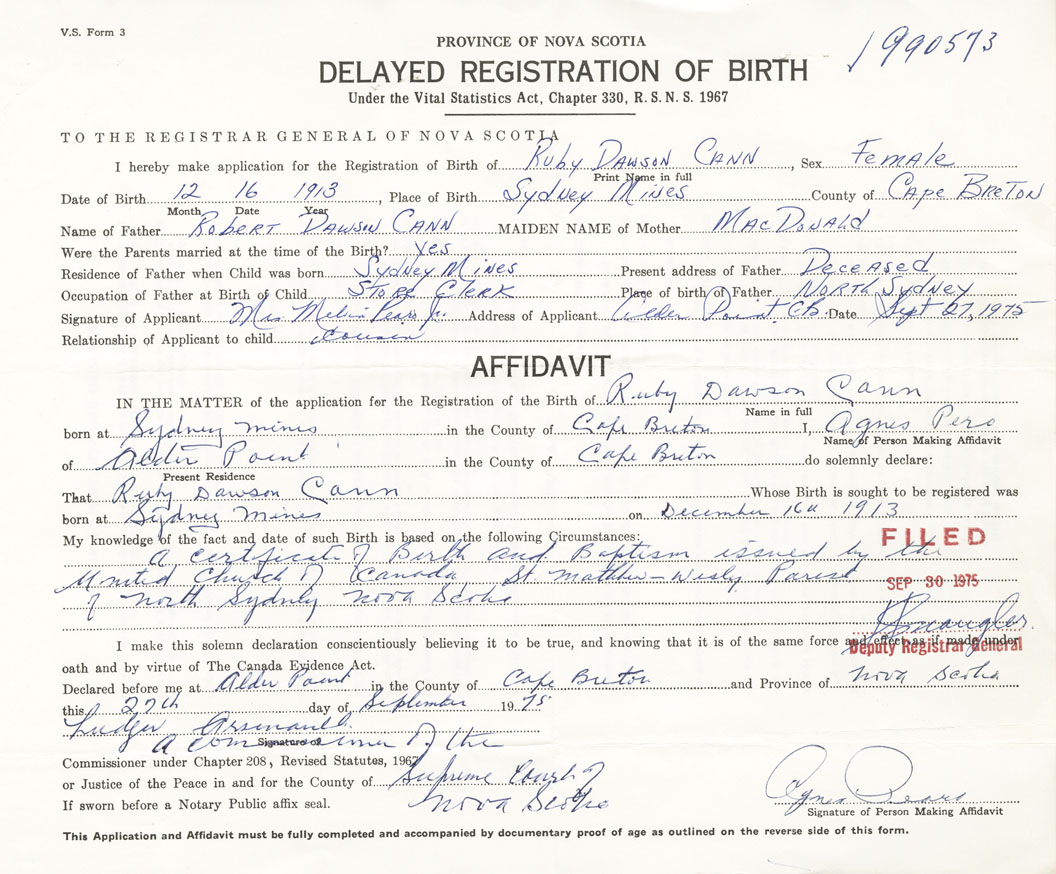 V.S. Form 3
1990573
PROVINCE OF NOVA SCOTIA
DELAYED REGISTRATION OF BIRTH
Under the Vital Statistics Act, Chapter 330, R. S. N. S. 1967
TO THE REGISTRAR GENERAL OF NOVA SCOTIA
I hereby make application for the Registration of Birth of Ruby Dawson Cann, Sex Female
Print Name in full
Date of Birth 12 16 1913, Place of Birth Sydney Mines County of Cape Breton
Month Date Year
Name of Father Robert Dawson Cann MAIDEN NAME of Mother MacDonald
Were the Parents married at the time of the Birth? Yes
Residence of Father when Child was born Sydney Mines Present address of Father Deceased
Occupation of Father at Birth of Child Store Clerk Place of birth of Father North Sydney
Signature of Applicant Mrs Melvin Jr. Address of Applicant Alder Point C.B. Date Sept 27, 1975
Relationship of Applicant to child Cousin
AFFIDAVIT
IN THE MATTER of the application for the Registration of the Birth of Ruby Dawson Cann
Name in full
born at Sydney Mines in the County of Cape Breton I, Agnes Pero
Name of Person Making Affidavit
of Alder Point in the County of Cape Breton do solemnly declare:
Present Residence
That Ruby Dawson Cann Whose Birth is sought to be registered was
born at Sydney Mines on December 16th 1913
My knowledge of the fact and date of such Birth is based on the following Circumstances:
FILED
A certificate of Birth and Baptism issued by the
United Church of Canada, St Matthew-Wesley Parish
SEP 30 1975
of North Sydney Nova Scotia
I make this solemn declaration conscientiously believing it to be true, and knowing that it is of the same force and effect as if made under
Deputy Registrar General
oath and by virtue of The Canada Evidence Act.
Declared before me at Alder Point in the County of Cape Breton and Province of Nova Scotia
this 27th day of September 1975
Ludger Arsenault
A Commissioner of the
Signature of
Commissioner under Chapter 208, Revised Statutes, 1967
or Justice of the Peace in and for the County of Supreme Court of
Nova Scotia
If sworn before a Notary Public affix seal.
Agnes Pears
Signature of Person Making Affidavit
This Application and Affidavit must be fully completed and accompanied by documentary proof of age as outlined on the reverse side of this form.